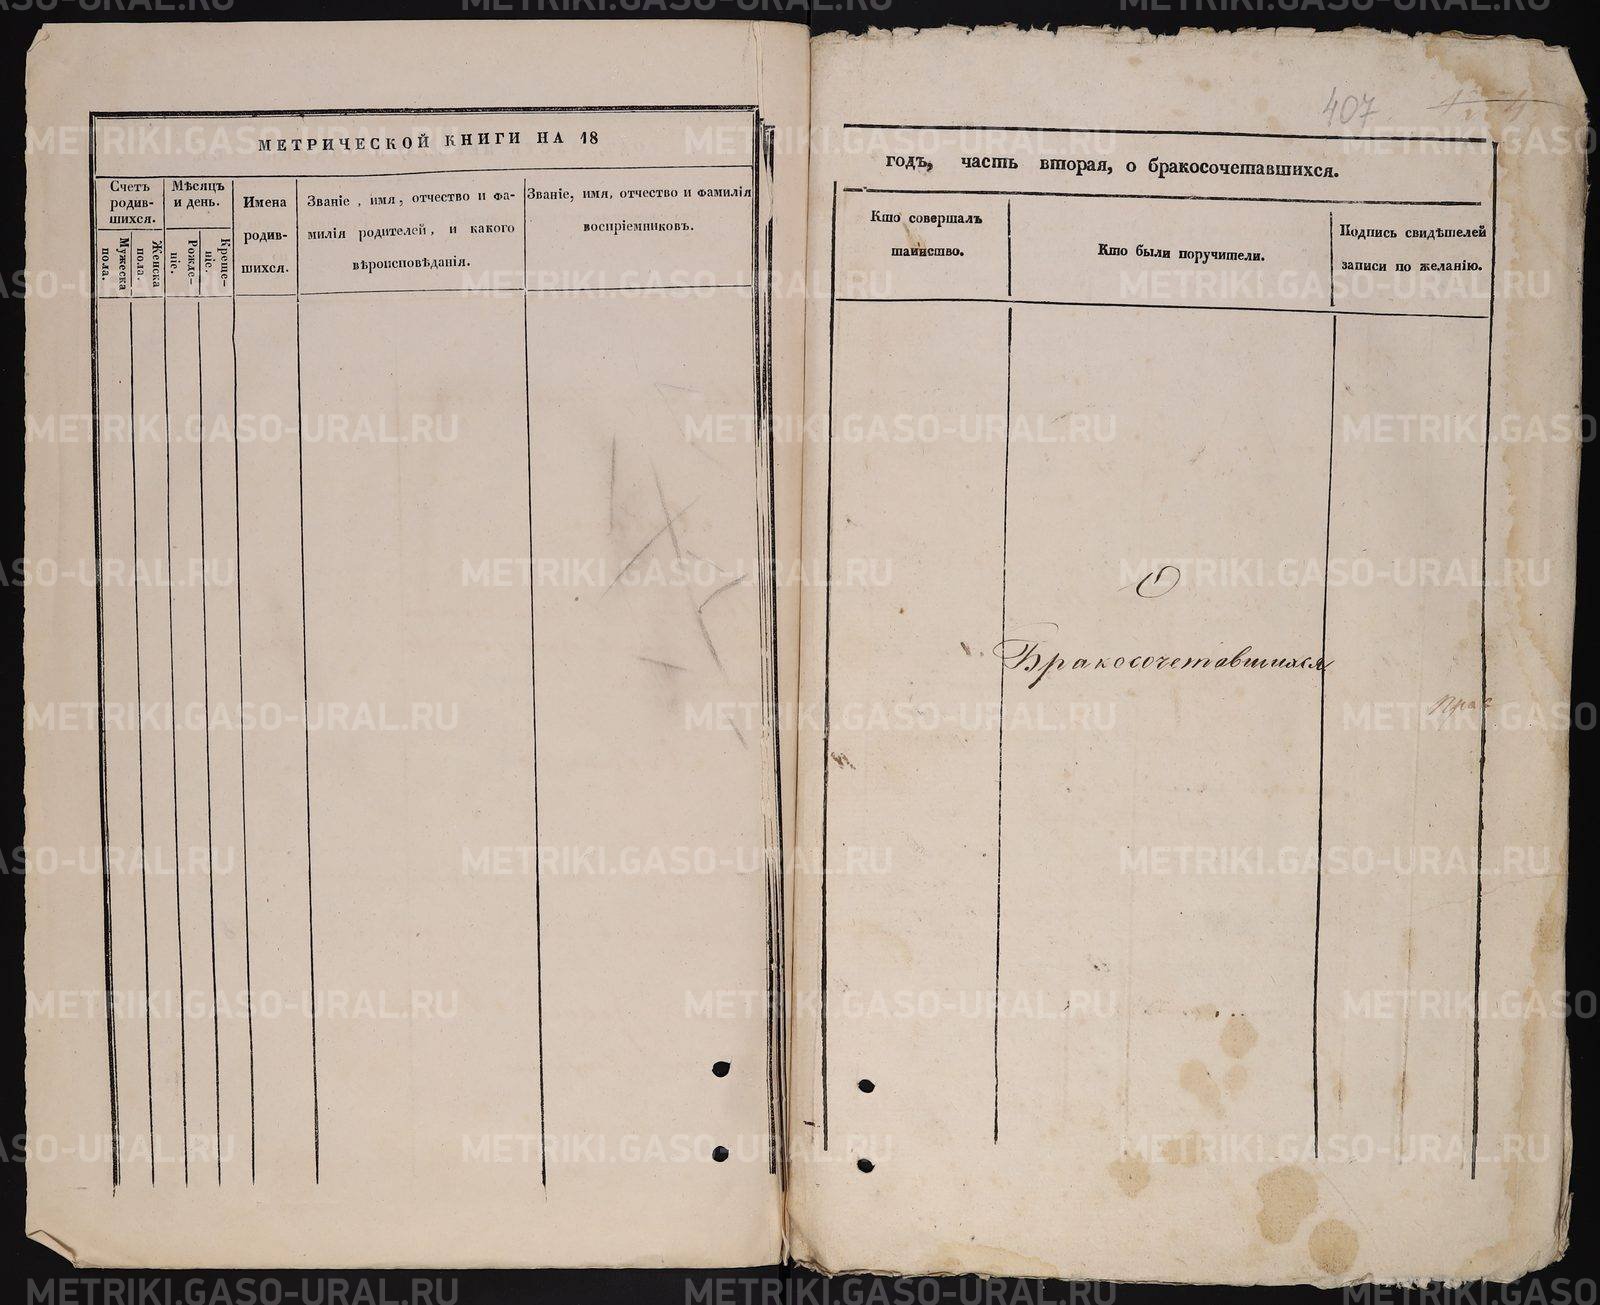 МЕТРИЧЕСКОЙ КНИГИ НА 18
Счетъ родив-шихся.
Мужеска пола.
Женска пола.
Мѣсяцъ и день.
Рожде-ніе.
Креще-ніе.
Имена
родив-
шихся.
Званіе, имя, отчество и фа-
милія родителей, и какого
вѣроисповѣданія.
Званіе, имя, отчество и фамилія
воспріемниковъ.
407
годъ, часть вторая, о бракосочетавшихся.
Кто совершалъ
таинство.
Кто были поручители.
Подпись свидѣтелей
записи по желанію.
О
Бракосочетавшихся
METRIKI.GASO-URAL.RU